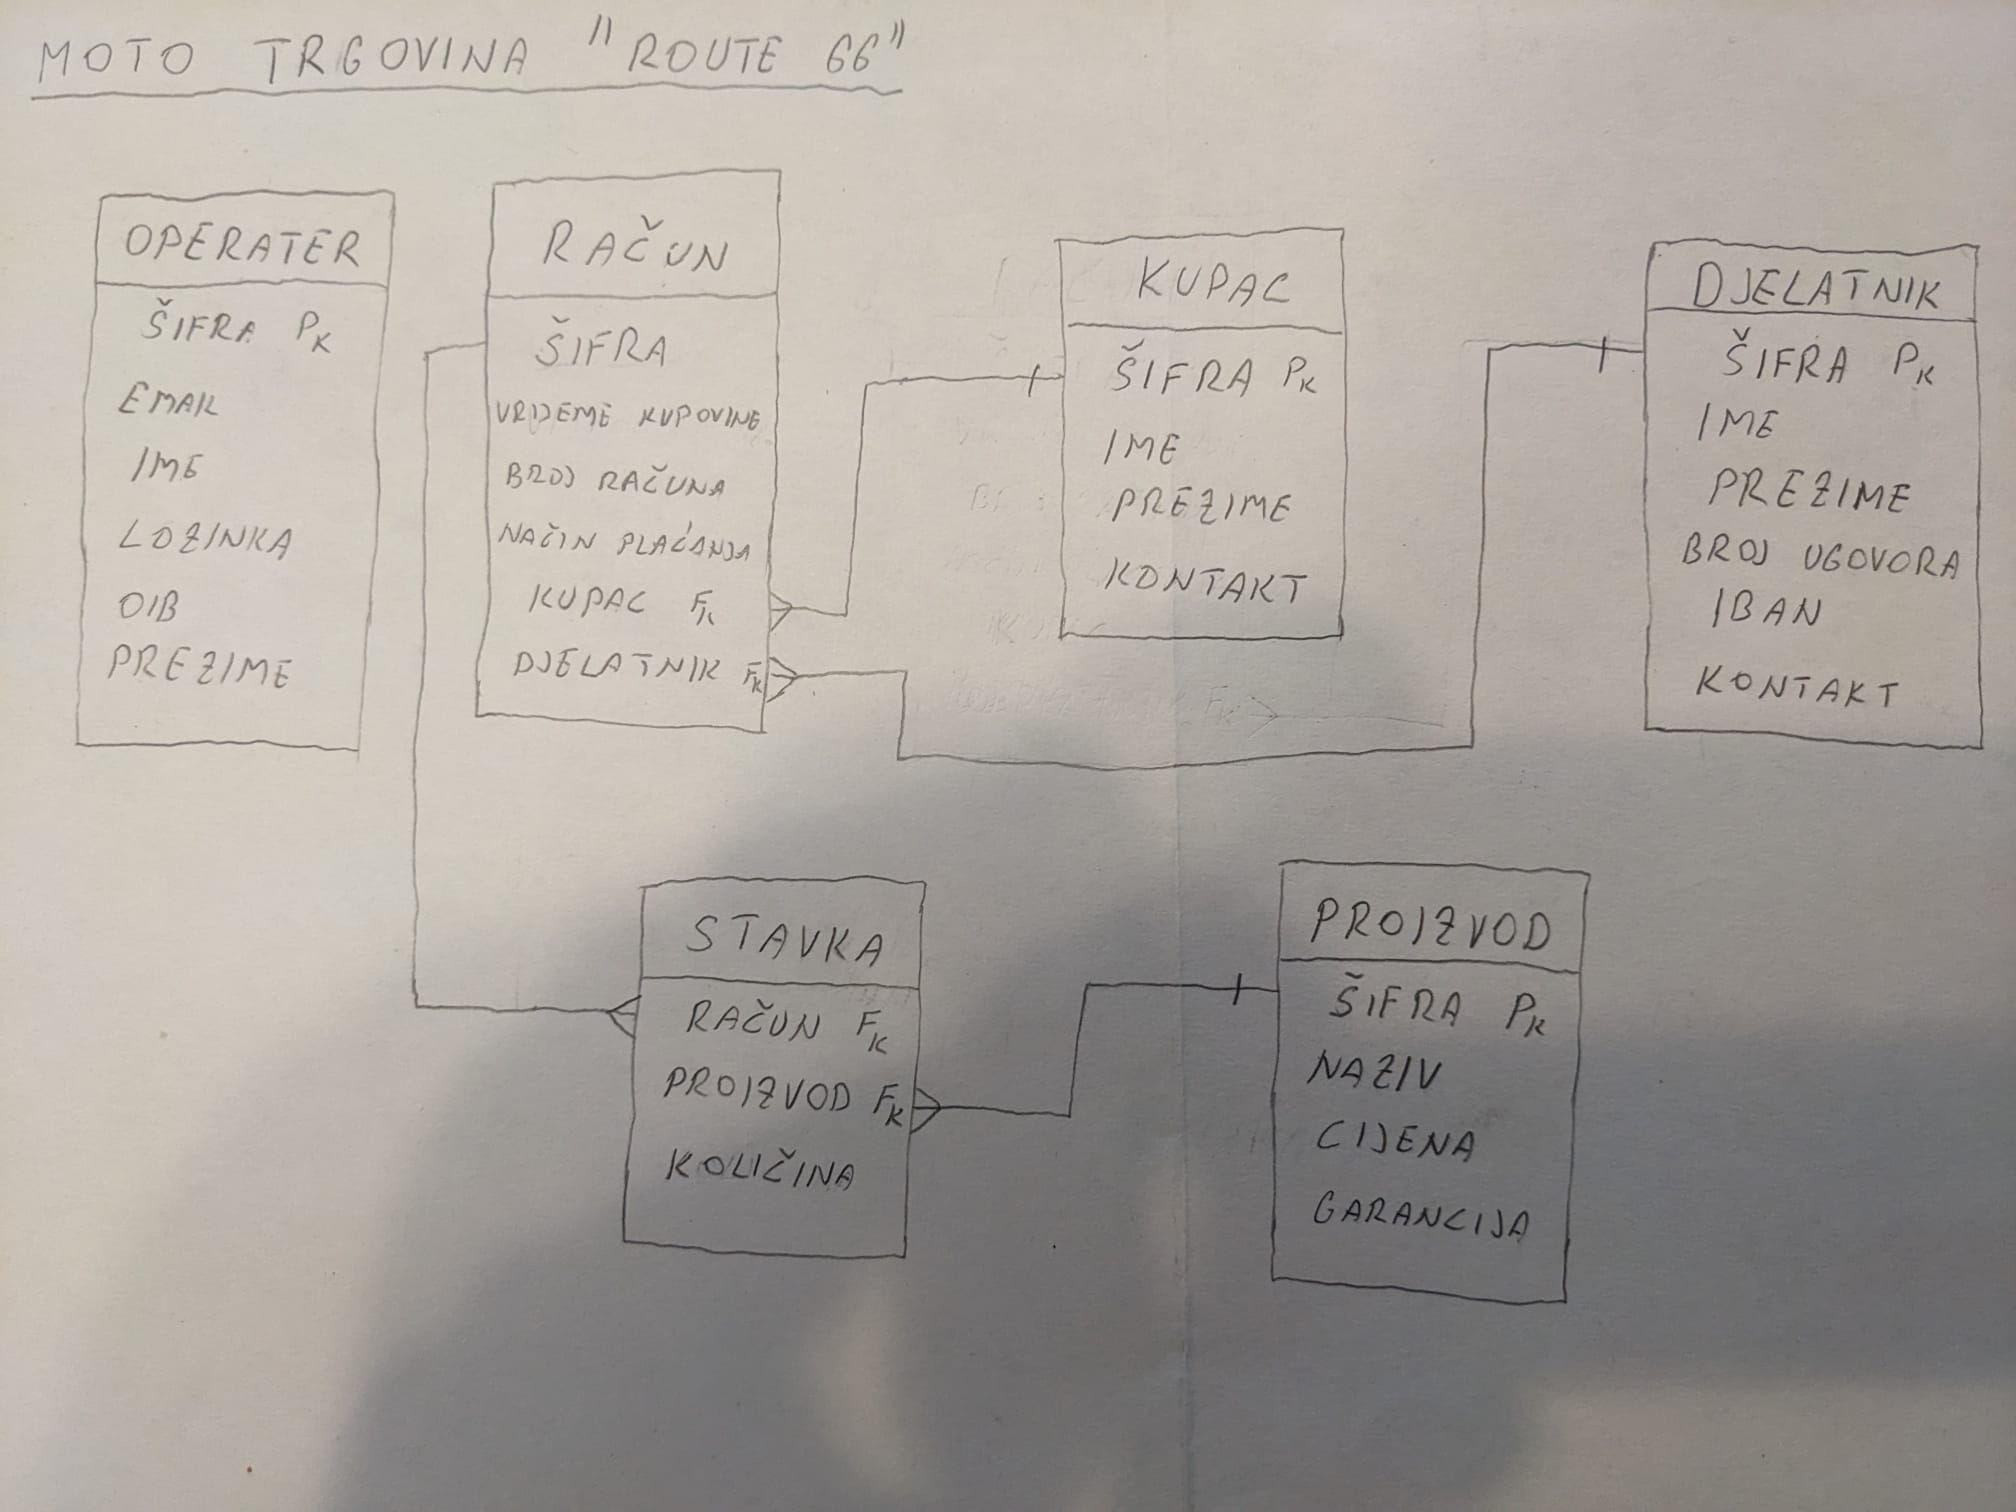 MOTO TRGOVINA "ROUTE 66"
OPERATER
ŠIFRA PK
EMAIL
IME
LOZINKA
OIB
PREZIME
RAČUN
ŠIFRA
VRIJEME KUPOVINE
BROJ RAČUNA
NAČIN PLAĆANJA
KUPAC FK
DJELATNIK FK
KUPAC
ŠIFRA PK
IME
PREZIME
KONTAKT
DJELATNIK
ŠIFRA PK
IME
PREZIME
BROJ UGOVORA
IBAN
KONTAKT
STAVKA
RAČUN FK
PROIZVOD FK
KOLIČINA
PROIZVOD
ŠIFRA PK
NAZIV
CIJENA
GARANCIJA